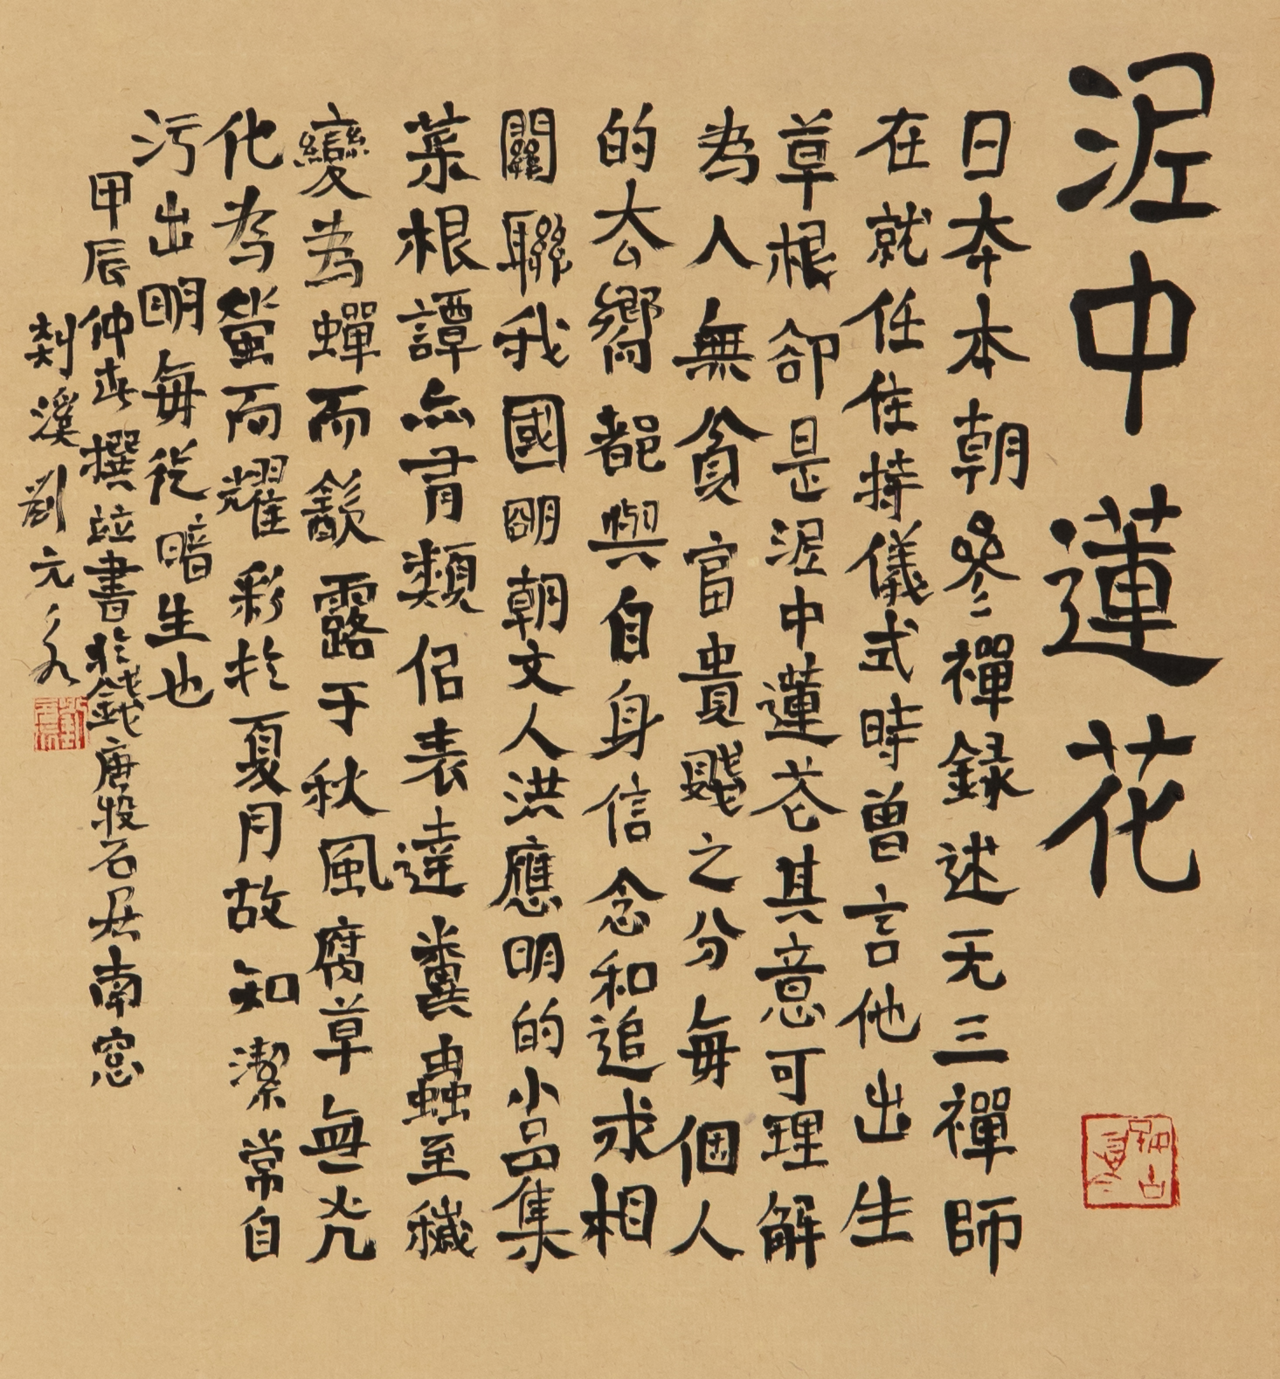 泥中蓮花
日本本朝參禪録述无三禪師
在就任住持儀式時曾言他出生
草根卻是泥中蓮花其意可理解
為人無貧富貴賤之分每個人
的去嚮都與自身信念和追求相
關聯我國明朝文人洪應明的小品集
菜根譚亦有類似表達糞蟲至穢
變為蟬而飲露于秋風腐草無光
化為螢而耀彩於夏月故知潔常自
污出明每從暗生也
甲辰仲春撰並書於錢唐牧石居南窓
剡溪劉元